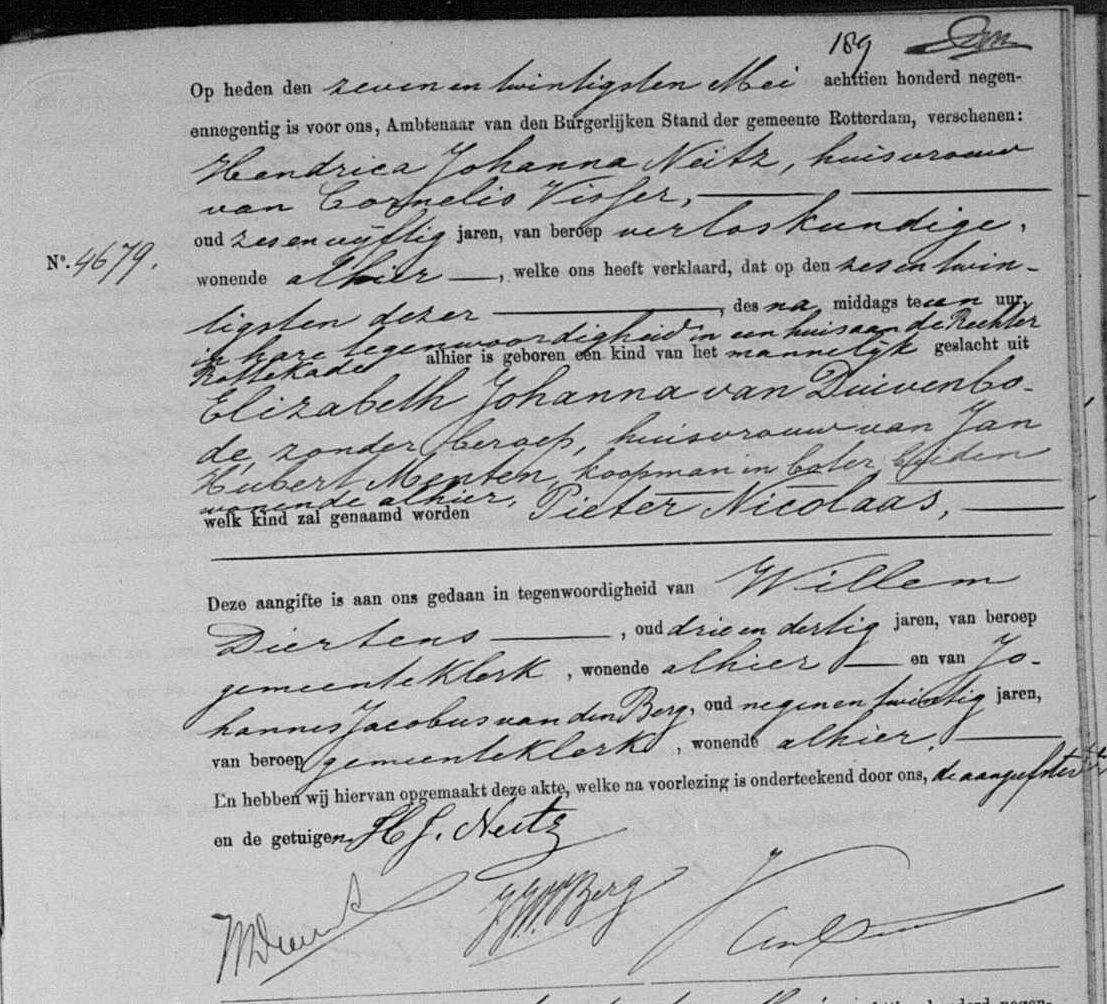 189
Op heden den zeven en twintigsten Mei achttien honderd negen-
ennegentig is voor ons, Ambtenaar van den Burgerlijken Stand der gemeente Rotterdam, verschenen:
Hendrica Johanna Neitz, huisvrouw
van Cornelis Visser,
oud zes en vijftig jaren, van beroep verloskundige,
No. 4679.
wonende alhier, welke ons heeft verklaard, dat op den zes en twin-
tigsten dezer, des na middags te een uur,
in hare tegenwoordigheid in een huis aan de Rechter
Rottekade alhier is geboren een kind van het mannelijk geslacht uit
Elizabeth Johanna van Duivenbo-
de, zonder beroep, huisvrouw van Jan
Hubert Menten, koopman in boter, beiden
wonende alhier,
welk kind zal genaamd worden Pieter Nicolaas,
Deze aangifte is aan ons gedaan in tegenwoordigheid van Willem
Diertens, oud drie en dertig jaren, van beroep
gemeenteklerk, wonende alhier en van Jo-
hannes Jacobus van den Berg, oud negen en twintig jaren,
van beroep gemeenteklerk, wonende alhier.
En hebben wij hiervan opgemaakt deze akte, welke na voorlezing is onderteekend door ons, de aangeefster
en de getuigen.
H J. Neitz
Berg